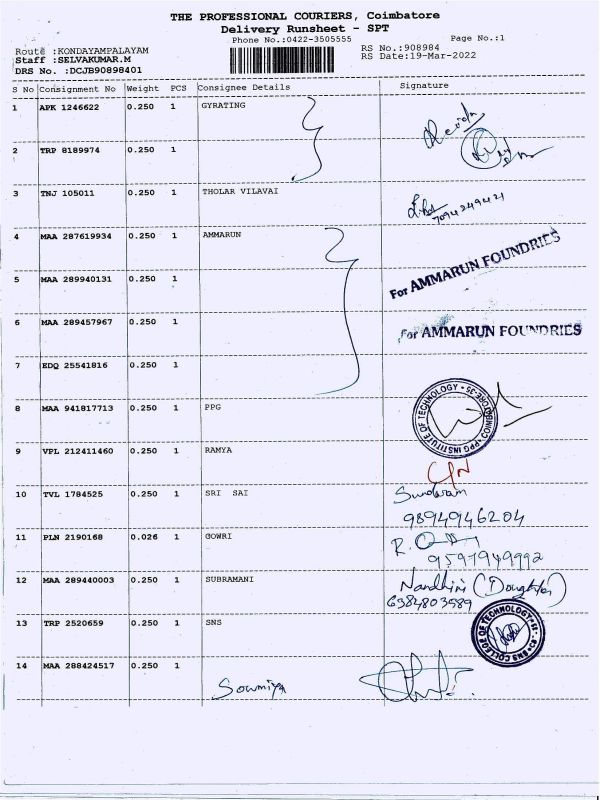 THE PROFESSIONAL COURIERS, Coimbatore
Delivery Runsheet - SPT
Phone No.:0422-3505555 Page No.:1
Route :KONDAYAMPALAYAM RS No.:908984
Staff :SELVAKUMAR.M RS Date:19-Mar-2022
DRS No. :DCJB90898401
S No Consignment No Weight PCS Consignee Details Signature
1 APK 1246622 0.250 1 GYRATING
2 TRP 8189974 0.250 1
3 TNJ 105011 0.250 1 THOLAR VILAVAI
7094249421
4 MAA 287619934 0.250 1 AMMARUN
For AMMARUN FOUNDRIES
5 MAA 289940131 0.250 1
6 MAA 289457967 0.250 1
For AMMARUN FOUNDRIES
7 EDQ 25541816 0.250 1
8 MAA 941817713 0.250 1 PPG
PPG INSTITUTE OF TECHNOLOGY * COIMBATORE-35 *
9 VPL 212411460 0.250 1 RAMYA
10 TVL 1784525 0.250 1 SRI SAI
Sundaram
9894946204
11 PLN 2190168 0.026 1 GOWRI
9597949992
12 MAA 289440003 0.250 1 SUBRAMANI
Nandhini (Doughter)
6384803589
13 TRP 2520659 0.250 1 SNS
SNS COLLEGE OF TECHNOLOGY
14 MAA 288424517 0.250 1
Sowmiya